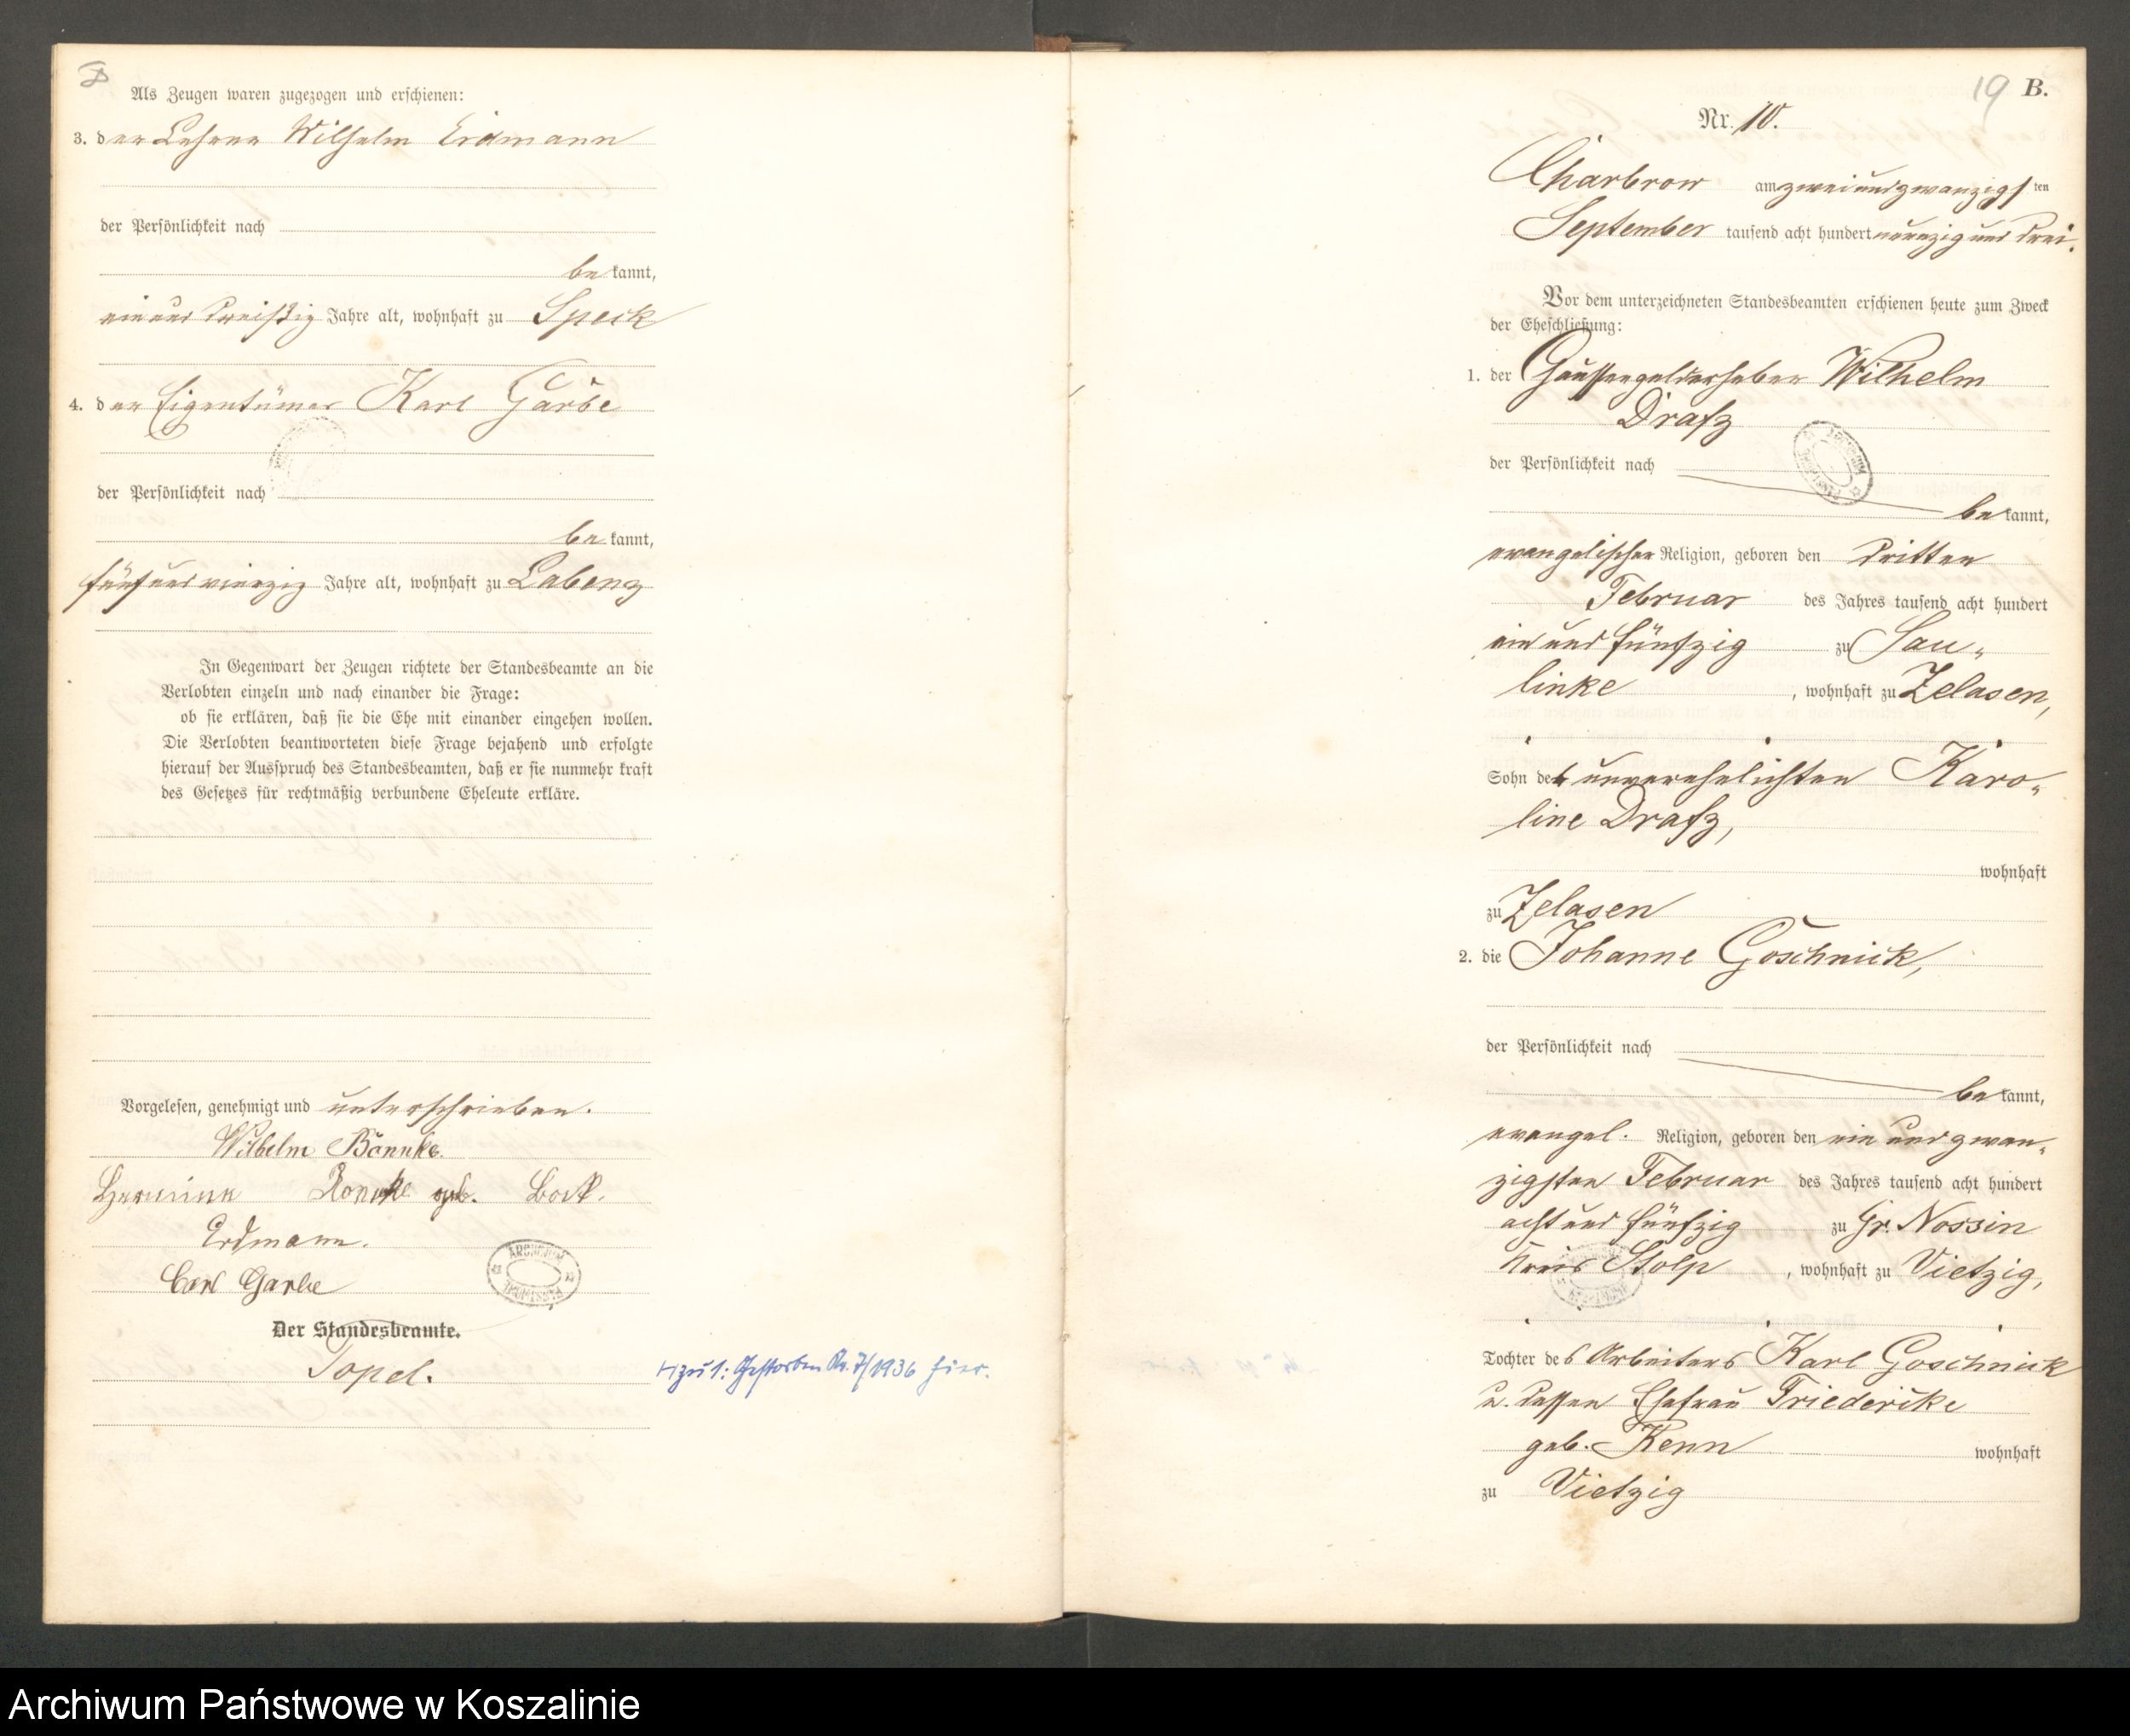 Als Zeugen waren zugezogen und erschienen:
3. der Lehrer Wilhelm Erdmann
der Persönlichkeit nach
bekannt,
einunddreißig Jahre alt, wohnhaft zu Speck
4. der Eigentümer Karl Garbe
der Persönlichkeit nach
bekannt,
fünfundvierzig Jahre alt, wohnhaft zu Labenz
In Gegenwart der Zeugen richtete der Standesbeamte an die
Verlobten einzeln und nach einander die Frage:
ob sie erklären, daß sie die Ehe mit einander eingehen wollen.
Die Verlobten beantworteten diese Frage bejahend und erfolgte
hierauf der Ausspruch des Standesbeamten, daß er sie nunmehr kraft
des Gesetzes für rechtmäßig verbundene Eheleute erkläre.
Vorgelesen, genehmigt und unterschrieben.
Wilhelm
geb. Bock.
Erdmann.
Carl Garbe
Der Standesbeamte.
Topel.
zu 1: Gestorben Nr. 7/1936 hier.
19 B.
Nr. 10.
Charbrow am zweiundzwanzigsten
September tausend acht hundert neunzig und drei.
Vor dem unterzeichneten Standesbeamten erschienen heute zum Zweck
der Eheschließung:
1. der Chausseegelderheber Wilhelm
Drafz
der Persönlichkeit nach
bekannt,
evangelischer Religion, geboren den dritten
Februar des Jahres tausend acht hundert
ein und fünfzig zu Sau-
linke, wohnhaft zu Zelasen,
Sohn der unverehelichten Karo-
line Drafz,
wohnhaft
zu Zelasen
2. die Johanne Goschnick,
der Persönlichkeit nach
bekannt,
evangel. Religion, geboren den ein und zwan-
zigsten Februar des Jahres tausend acht hundert
acht und fünfzig zu Gr. Nossin
Kreis Stolp, wohnhaft zu Vietzig,
Tochter des Arbeiters Karl Goschnick
u. dessen Ehefrau Friederike
geb. Kenn wohnhaft
zu Vietzig
Archiwum Państwowe w Koszalinie